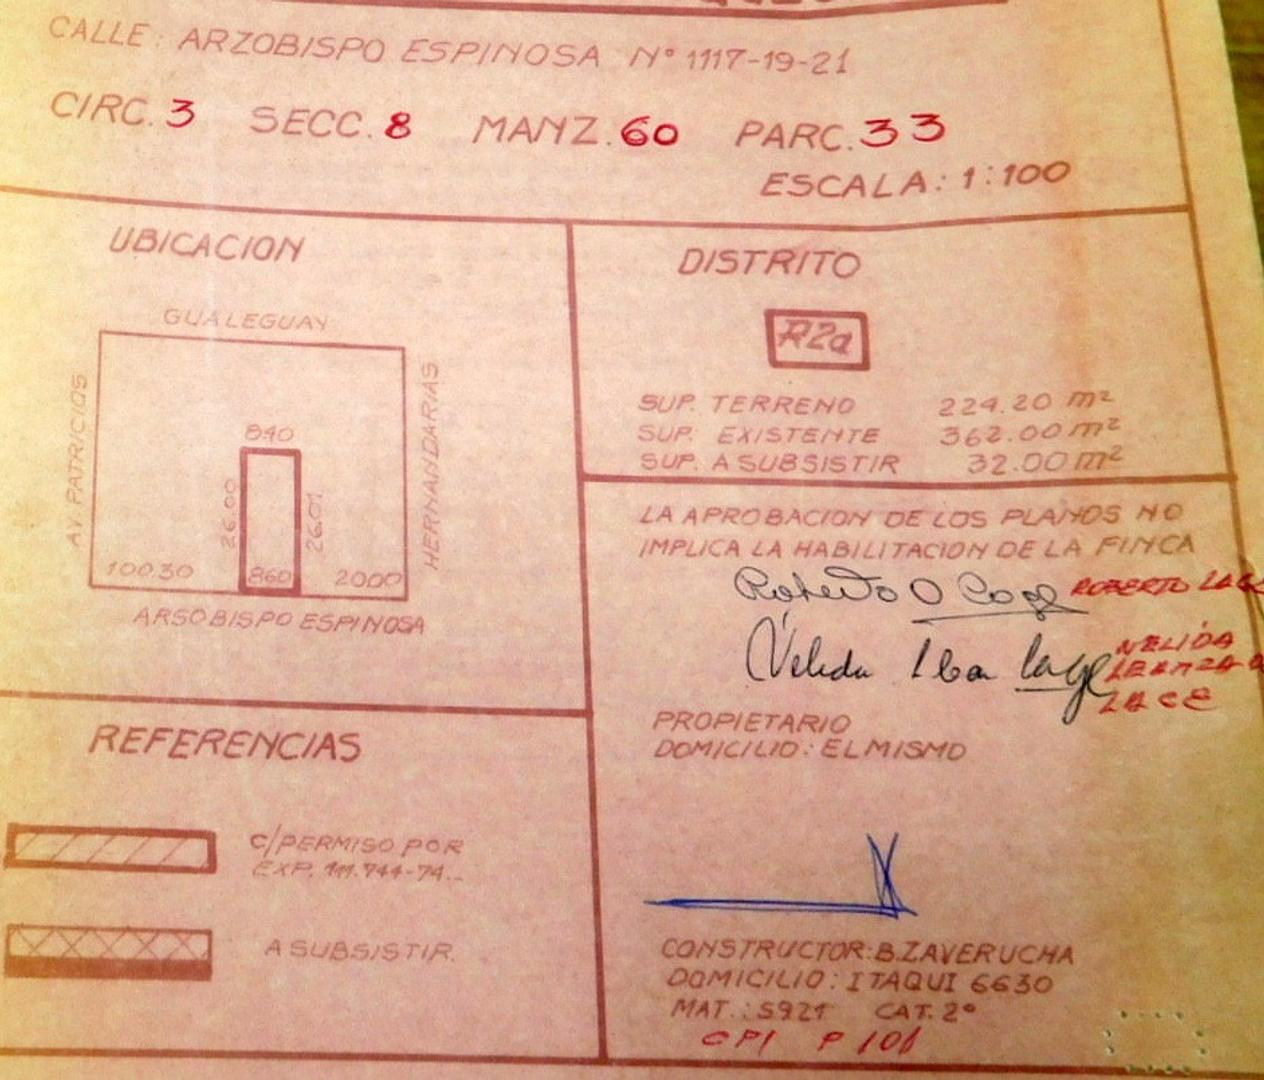 CALLE: ARZOBISPO ESPINOSA Nº 1117-19-21
CIRC. 3 SECC. 8 MANZ. 60 PARC. 33
ESCALA: 1:100
UBICACION
GUALEGUAY
AV. PATRICIOS
HERNANDARIAS
840
26.00
26.01
100.30
860
2000
ARSOBISPO ESPINOSA
DISTRITO
R2a
SUP. TERRENO 224.20 m²
SUP. EXISTENTE 362.00 m²
SUP. A SUBSISTIR 32.00 m²
LA APROBACION DE LOS PLANOS NO
IMPLICA LA HABILITACION DE LA FINCA
ROBERTO
NELIDA
PROPIETARIO
DOMICILIO: EL MISMO
REFERENCIAS
C/PERMISO POR
EXP.
A SUBSISTIR.
CONSTRUCTOR: B. ZAVERUCHA
DOMICILIO: ITAQUI 6630
MAT.: 5921 CAT. 2º